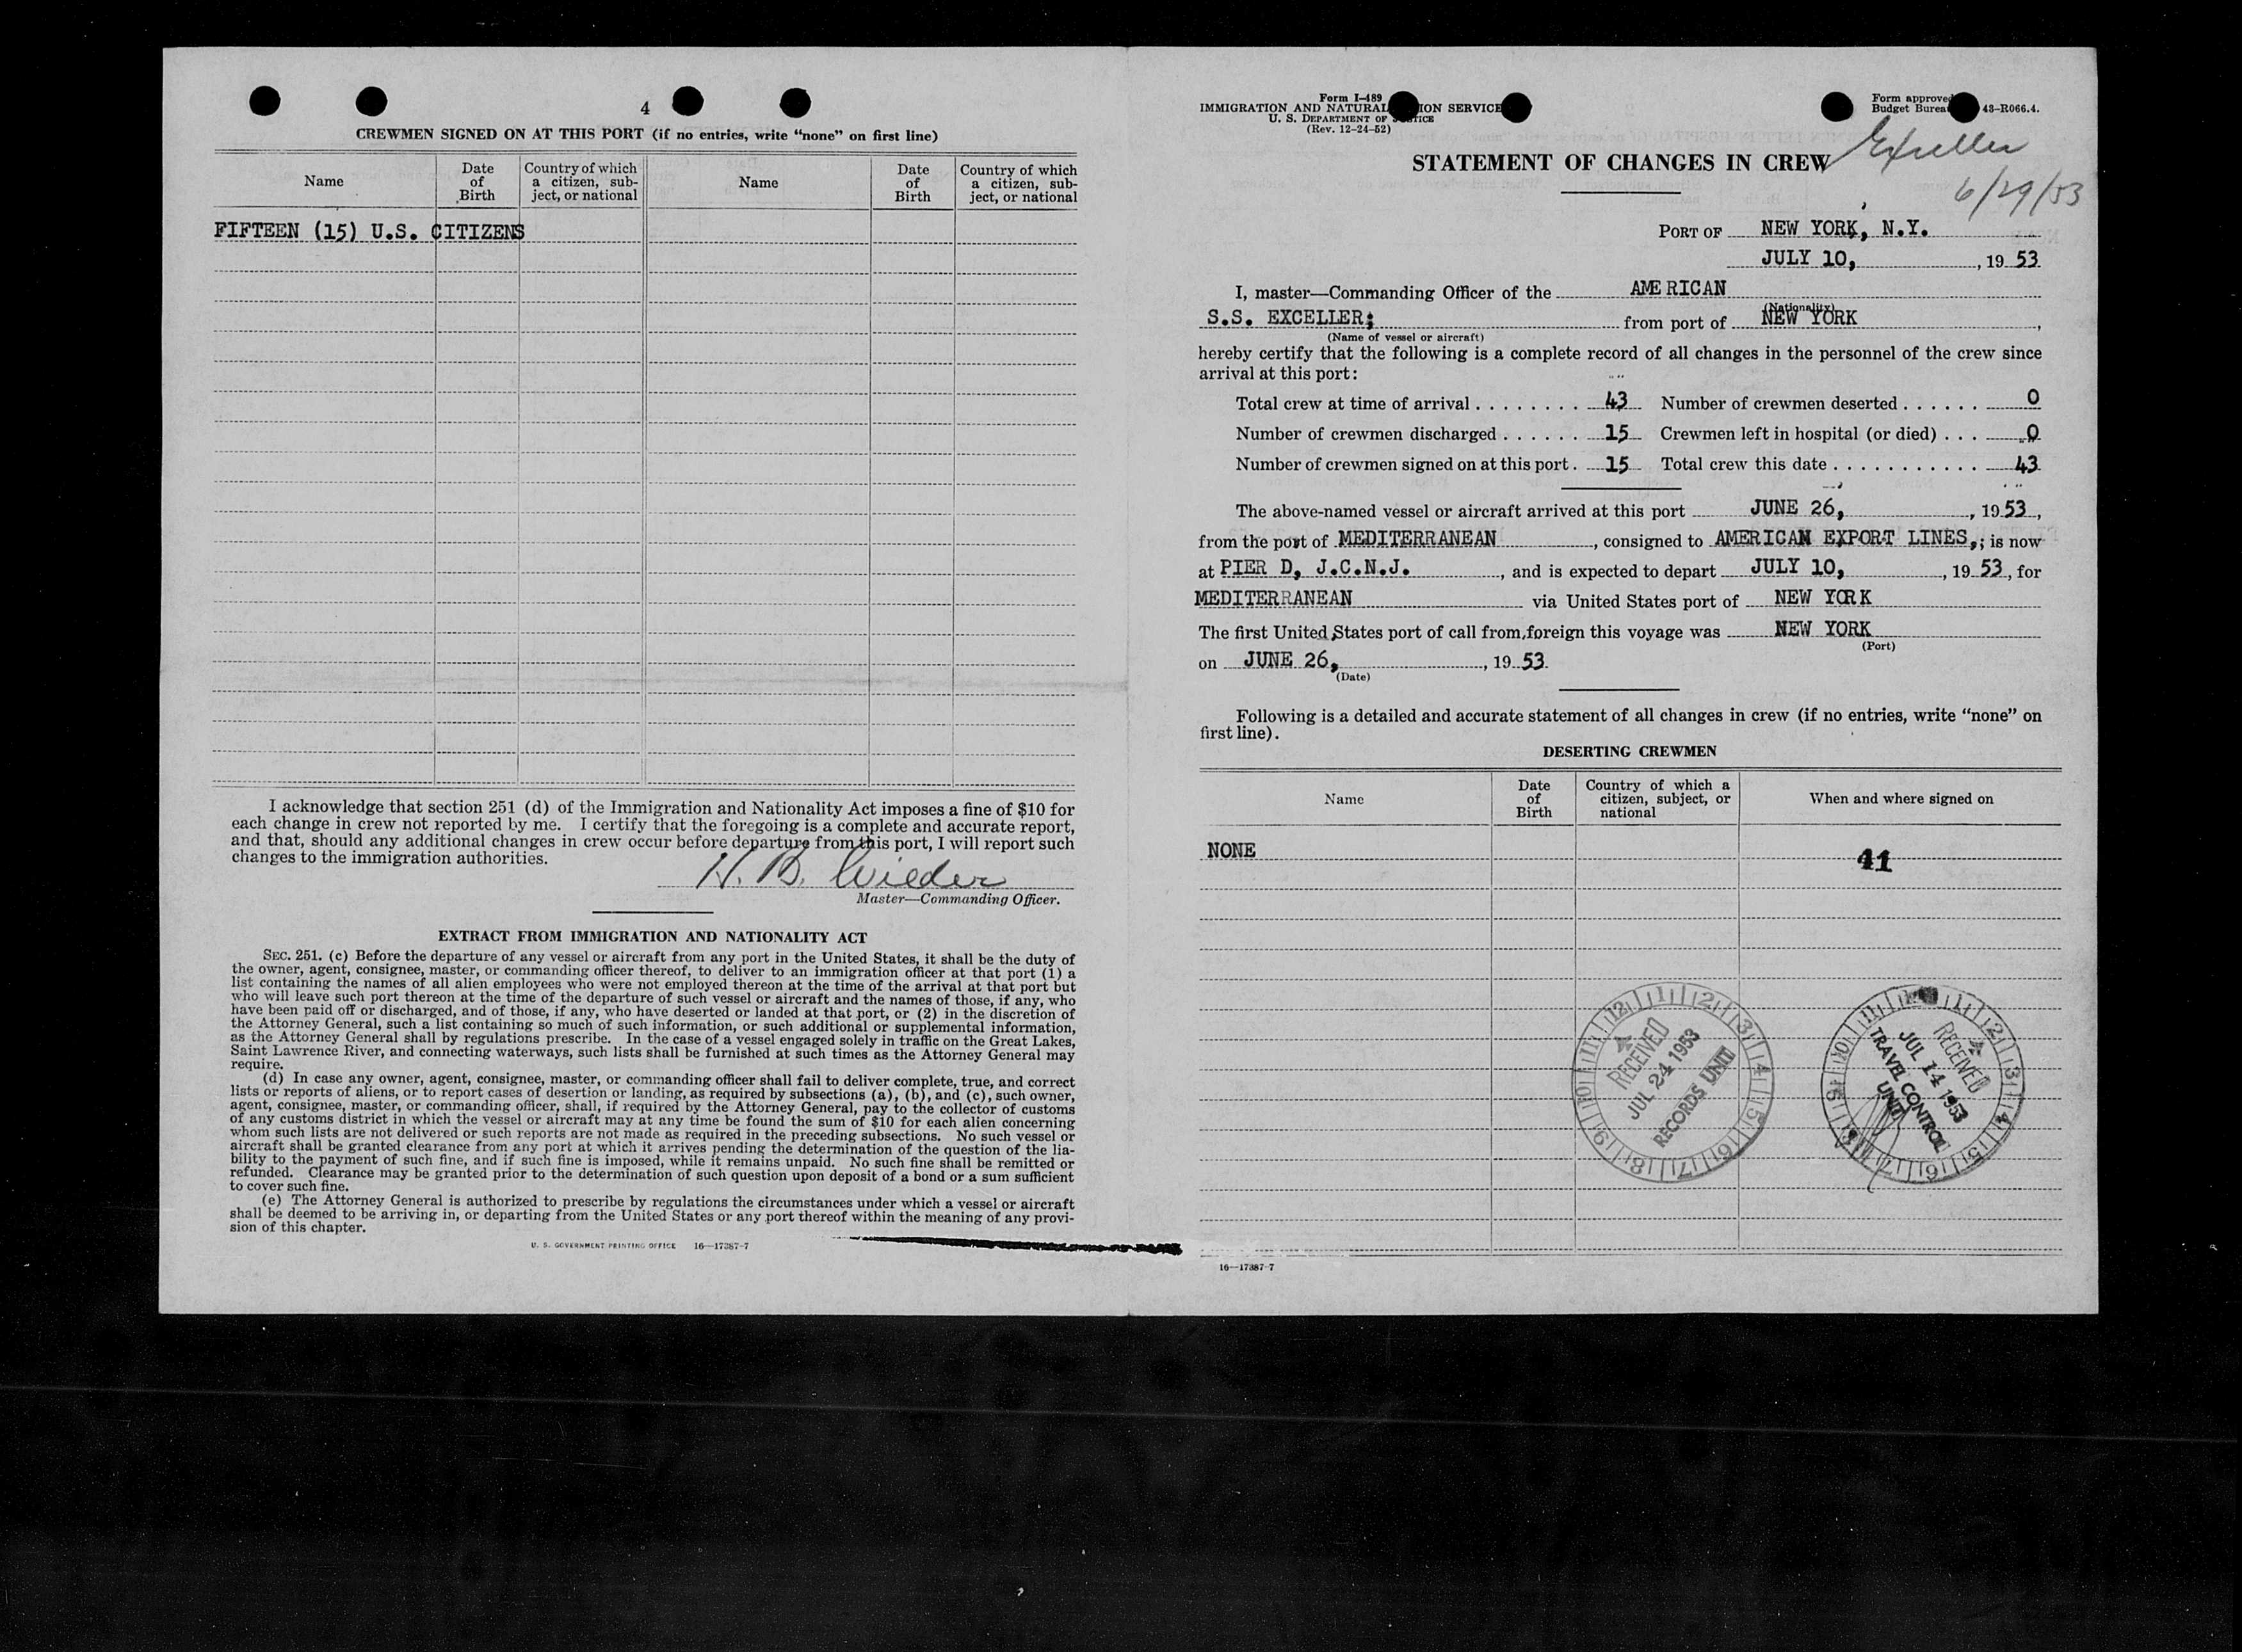 4
CREWMEN SIGNED ON AT THIS PORT (if no entries, write “none” on first line)
Name
Date of Birth
Country of which a citizen, sub-
ject, or national
Name
Date of Birth
Country of which a citizen, sub-
ject, or national
FIFTEEN (15) U.S. CITIZENS
I acknowledge that section 251 (d) of the Immigration and Nationality Act imposes a fine of $10 for
each change in crew not reported by me. I certify that the foregoing is a complete and accurate report,
and that, should any additional changes in crew occur before departure from this port, I will report such
changes to the immigration authorities.
H. B. Wieder
Master—Commanding Officer.
EXTRACT FROM IMMIGRATION AND NATIONALITY ACT
SEC. 251. (c) Before the departure of any vessel or aircraft from any port in the United States, it shall be the duty of
the owner, agent, consignee, master, or commanding officer thereof, to deliver to an immigration officer at that port (1) a
list containing the names of all alien employees who were not employed thereon at the time of the arrival at that port but
who will leave such port thereon at the time of the departure of such vessel or aircraft and the names of those, if any, who
have been paid off or discharged, and of those, if any, who have deserted or landed at that port, or (2) in the discretion of
the Attorney General, such a list containing so much of such information, or such additional or supplemental information,
as the Attorney General shall by regulations prescribe. In the case of a vessel engaged solely in traffic on the Great Lakes,
Saint Lawrence River, and connecting waterways, such lists shall be furnished at such times as the Attorney General may
require.
(d) In case any owner, agent, consignee, master, or commanding officer shall fail to deliver complete, true, and correct
lists or reports of aliens, or to report cases of desertion or landing, as required by subsections (a), (b), and (c), such owner,
agent, consignee, master, or commanding officer, shall, if required by the Attorney General, pay to the collector of customs
of any customs district in which the vessel or aircraft may at any time be found the sum of $10 for each alien concerning
whom such lists are not delivered or such reports are not made as required in the preceding subsections. No such vessel or
aircraft shall be granted clearance from any port at which it arrives pending the determination of the question of the lia-
bility to the payment of such fine, and if such fine is imposed, while it remains unpaid. No such fine shall be remitted or
refunded. Clearance may be granted prior to the determination of such question upon deposit of a bond or a sum sufficient
to cover such fine.
(e) The Attorney General is authorized to prescribe by regulations the circumstances under which a vessel or aircraft
shall be deemed to be arriving in, or departing from the United States or any port thereof within the meaning of any provi-
sion of this chapter.
U. S. GOVERNMENT PRINTING OFFICE 16—17387-7
Form I-489
IMMIGRATION AND NATURAL ION SERVICE
U. S. DEPARTMENT OF TICE
(Rev. 12-24-52)
Form approve
Budget Burea 43-R066.4.
Exceller
6/29/53
STATEMENT OF CHANGES IN CREW
PORT OF NEW YORK, N.Y.
JULY 10, , 19 53
I, master—Commanding Officer of the AMERICAN
(Nationality)
S.S. EXCELLER; from port of NEW YORK ,
(Name of vessel or aircraft)
hereby certify that the following is a complete record of all changes in the personnel of the crew since
arrival at this port:
Total crew at time of arrival . . . . . . . . 43 Number of crewmen deserted . . . . . . 0
Number of crewmen discharged . . . . . . 15 Crewmen left in hospital (or died) . . . 0
Number of crewmen signed on at this port . 15 Total crew this date . . . . . . . . . . . 43
The above-named vessel or aircraft arrived at this port JUNE 26, , 19 53 ,
from the port of MEDITERRANEAN , consigned to AMERICAN EXPORT LINES,; is now
at PIER D, J.C.N.J. , and is expected to depart JULY 10, , 19 53 , for
MEDITERRANEAN via United States port of NEW YORK
The first United States port of call from foreign this voyage was NEW YORK
(Port)
on JUNE 26, , 19 53
(Date)
Following is a detailed and accurate statement of all changes in crew (if no entries, write “none” on
first line).
DESERTING CREWMEN
Name
Date of Birth
Country of which a citizen, subject, or national
When and where signed on
NONE
41
RECEIVED
JUL 24 1953
RECORDS UNIT
RECEIVED
JUL 14 1953
TRAVEL CONTROL
UNIT
16—17387-7